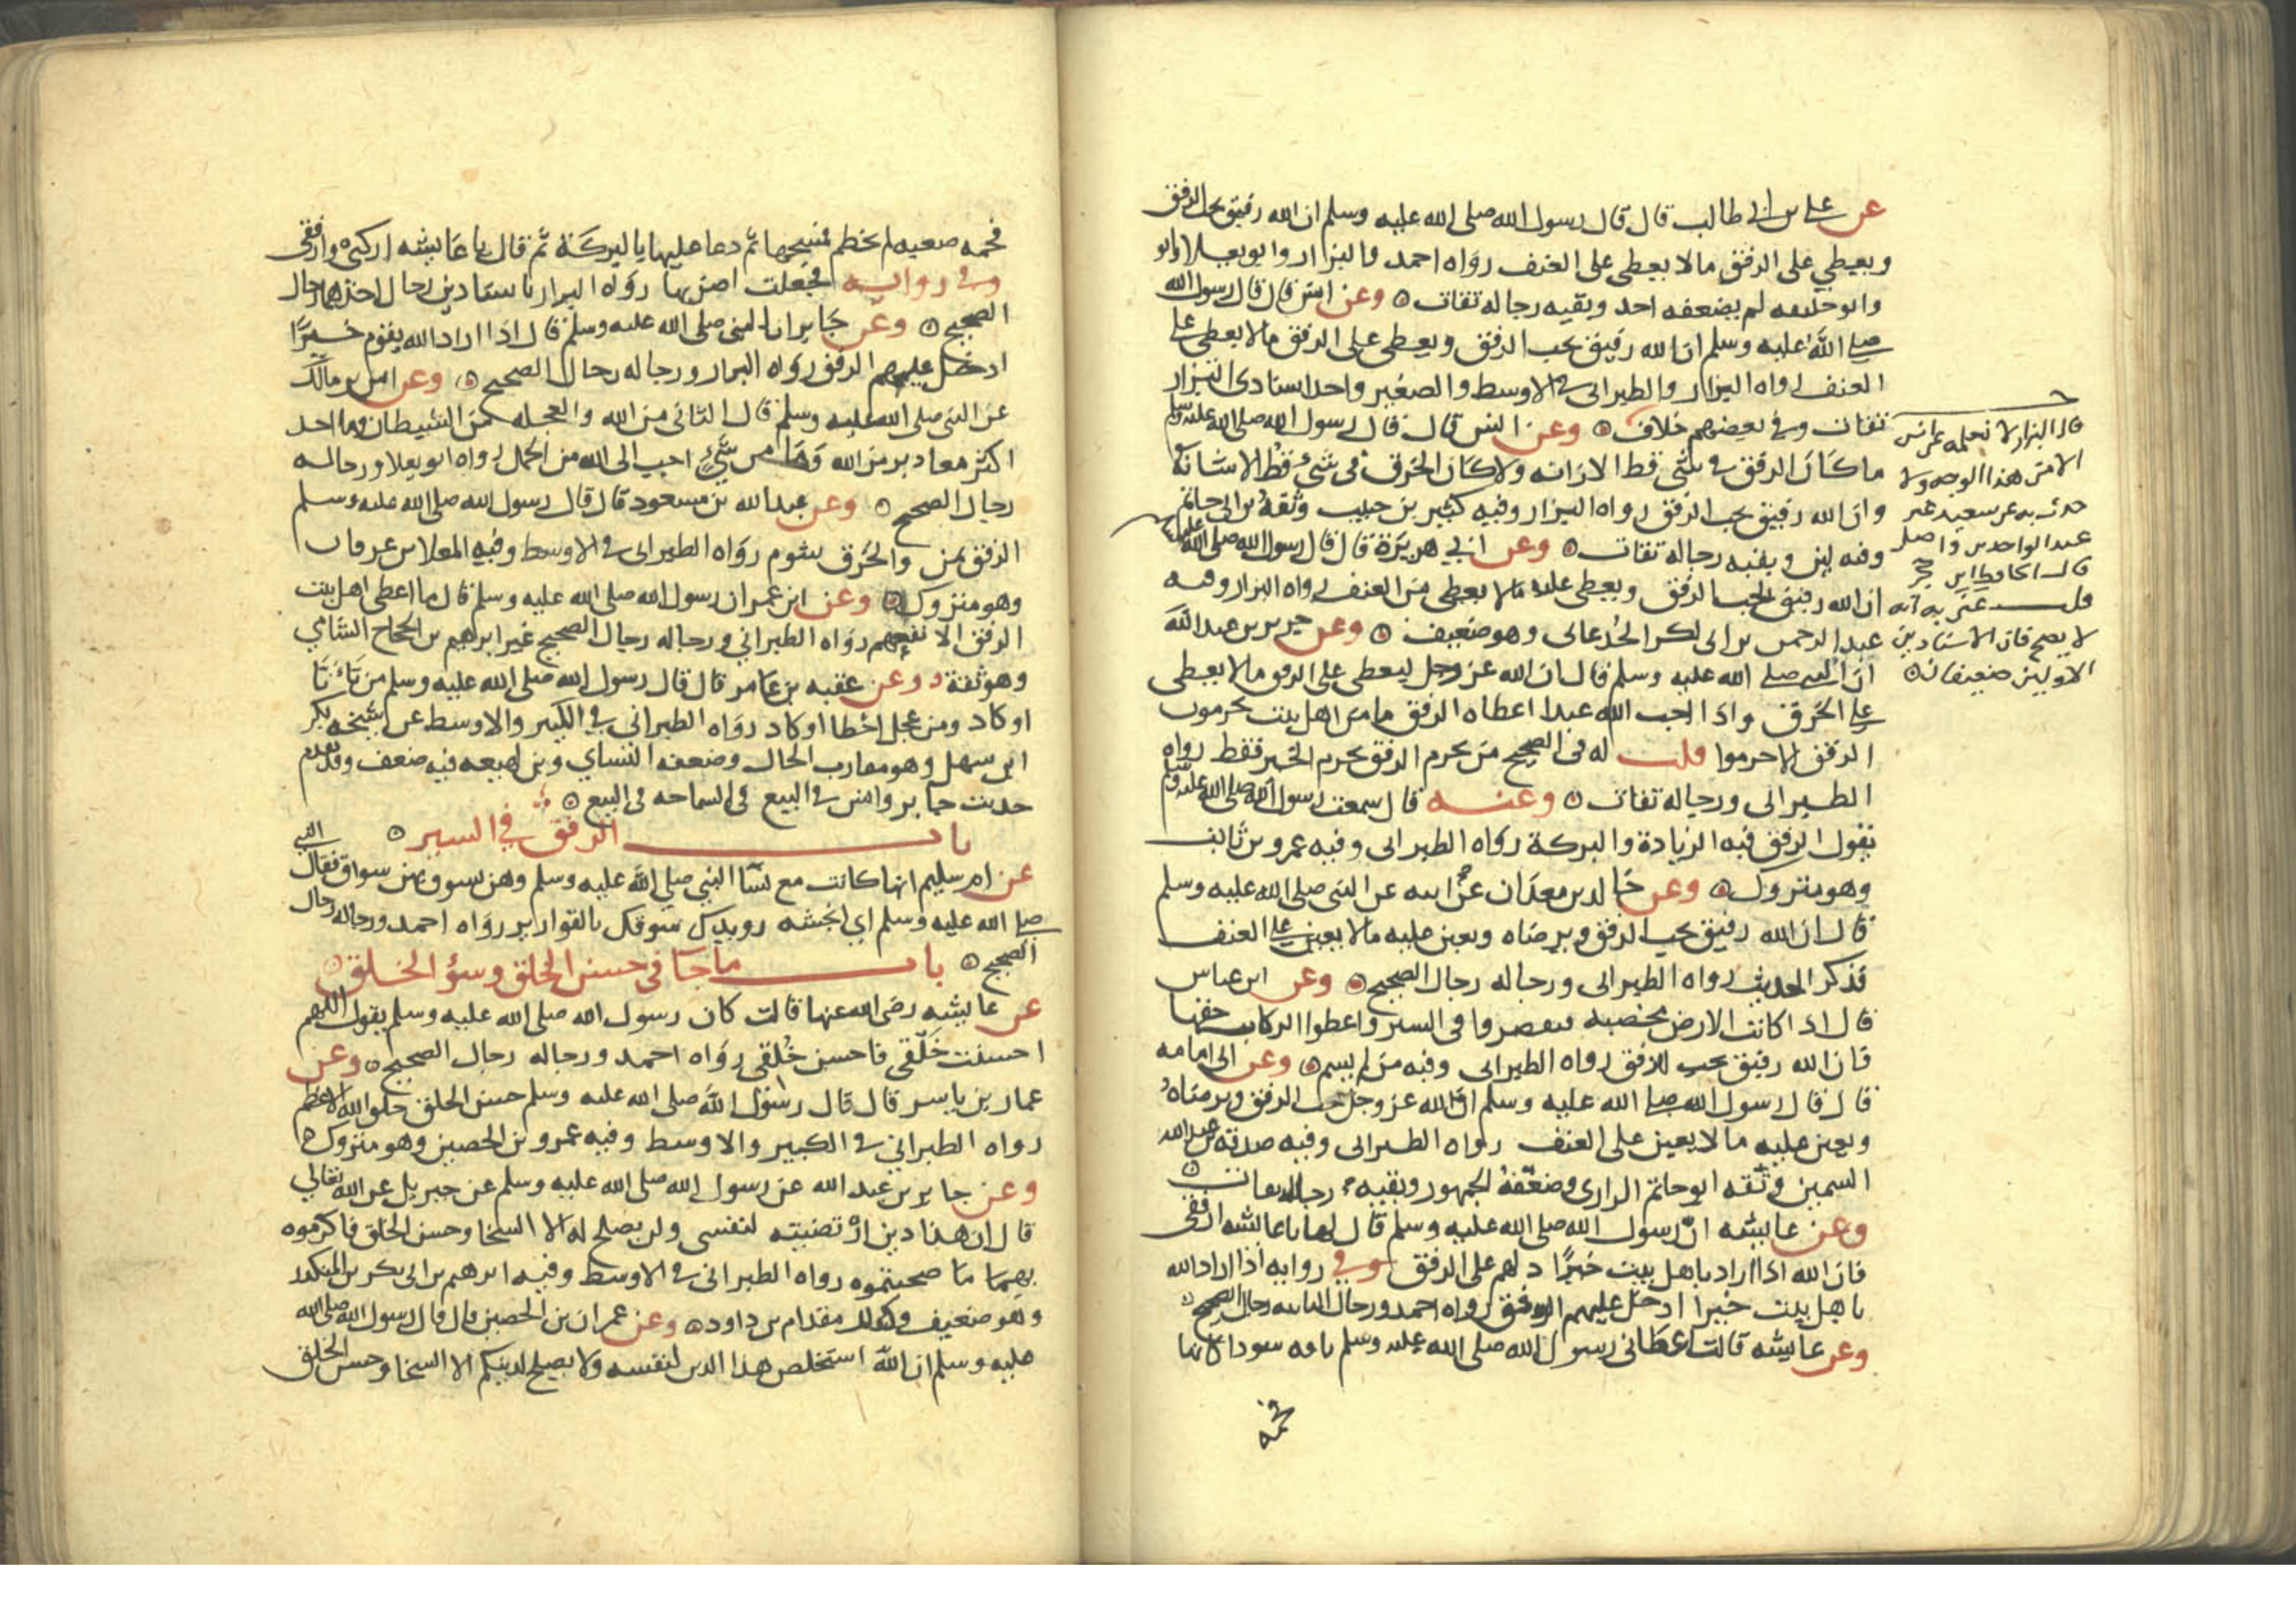 عن علي بن ابي طالب قال قال رسول الله صلى الله عليه وسلم ان الله رفيق يحب الرفق
ويعطي على الرفق مالا يعطى على العنف رواه احمد والبزار وابو يعلا وابو
وابو خليفه لم يضعفه احد وبقيه رجاله ثقات ٥ وعن انس قال قال رسول الله
صلى الله عليه وسلم ان الله رفيق يحب الرفق ويعطى على الرفق مالا يعطى على
العنف رواه البزار والطبرانى فى الاوسط والصغير واحد اسنادى البزار
ثقات وفى بعضهم خلاف ٥ وعن انس قال قال رسول الله صلى الله عليه وسلم
ما كان الرفق فى شى قط الا زانه ولا كان الخرق فى شى قط الا شانه
وان الله رفيق يحب الرفق رواه البزار وفيه كثير بن حبيب وثقه بن ابى حاتم
وفيه لين وبقيه رجاله ثقات ٥ وعن ابي هريرة قال قال رسول الله صلى الله عليه
ان الله رفيق يحب الرفق ويعطى عليه مالا يعطى من العنف رواه البزار وفيه
عبد الرحمن بن ابى بكر الجدعانى وهو ضعيف ٥ وعن جرير بن عبد الله
ان النبي صلى الله عليه وسلم قال ان الله عز وجل ليعطى على الرفق مالا يعطى
على الخرق واذا احب الله عبدا اعطاه الرفق ما من اهل بيت يحرمون
الرفق الا حرموا قلت له فى الصحيح من يحرم الرفق يحرم الخير فقط رواه
الطبرانى ورجاله ثقات ٥ وعنه قال سمعت رسول الله صلى الله عليه وسلم
يقول الرفق فيه الزيادة والبركة رواه الطبرانى وفيه عمرو بن ثابت
وهو متروك ٥ وعن خالد بن معدان عن ابيه عن النبى صلى الله عليه وسلم
قال ان الله رفيق يحب الرفق ويرضاه ويعين عليه مالا يعين على العنف
فذكر الحديث رواه الطبرانى ورجاله رجال الصحيح ٥ وعن ابن عباس
قال اذا كانت الارض مخصبه فى السير واعطوا الركاب حقها
فان الله رفيق يحب الرفق رواه الطبرانى وفيه من لم يسم ٥ وعن ابى امامه
قال قال رسول الله صلى الله عليه وسلم ان الله عز وجل يحب الرفق ويرضاه
ويعين عليه مالا يعين على العنف رواه الطبرانى وفيه صدقه بن عبد الله
السمين وثقه ابو حاتم الرازى وضعفه الجمهور وبقيه رجاله ثقات ٥
وعن عايشه ان رسول الله صلى الله عليه وسلم قال لها يا عائشه ارفقى
فان الله اذا اراد باهل بيت خيرا دلهم على الرفق وفي روايه اذا اراد الله
باهل بيت خيرا ادخل عليهم الرفق رواه احمد ورجال الثانيه رجال الصحيح
وعن عايشه قالت اعطانى رسول الله صلى الله عليه وسلم ناقه سودا كانها
فحمه
قال البزار لا نعلمه عن انس
الا من هذا الوجه ولا
حدث به عن سعيد غير
عبد الواحد بن واصل
قال الحافظ ابن حجر
قلت
لا يصح فان الاسنادين
الاولين ضعيفان ٥
فحمه صعبه لم تخطم فمسحها ثم دعا عليها بالبركة ثم قال يا عايشه اركبى وارفقى
وفى روايه فجعلت اضربها رواه البزار باسنادين رجال احدهما رجال
الصحيح ٥ وعن جابر ان النبى صلى الله عليه وسلم قال اذا اراد الله بقوم خيرا
ادخل عليهم الرفق رواه البزار ورجاله رجال الصحيح ٥ وعن انس بن مالك
عن النبى صلى الله عليه وسلم قال التانى من الله والعجله من الشيطان وما احد
اكثر معاذير من الله وما من شىء احب الى الله من الحمد رواه ابو يعلا ورجاله
رجال الصحيح ٥ وعن عبد الله بن مسعود قال قال رسول الله صلى الله عليه وسلم
الرفق يمن والخرق شوم رواه الطبرانى فى الاوسط وفيه المعلا بن عرفان
وهو متروك ٥ وعن ابن عمر ان رسول الله صلى الله عليه وسلم قال ما اعطى اهل بيت
الرفق الا نفعهم رواه الطبراني ورجاله رجال الصحيح غير ابراهيم بن الحجاج الشامي
وهو ثقة وعن عقبه بن عامر قال قال رسول الله صلى الله عليه وسلم من تانا
او كاد ومن عجل اخطا او كاد رواه الطبرانى فى الكبير والاوسط عن شيخه بكر
ابن سهل وهو مقارب الحال وضعفه النساي وبن لهيعه فيه ضعف وقد تقدم
حديث جابر وانس فى البيع فى السماحه فى البيع ٥
باب الرفق في السير ٥
عن ام سليم انها كانت مع نسا النبي صلى الله عليه وسلم وهن يسوق بهن سواق فقال النبي
صلى الله عليه وسلم اي انجشه رويدك سوقك بالقوارير رواه احمد ورجاله رجال
الصحيح ٥ باب ماجا فى حسن الخلق وسؤ الخلق ٥
عن عايشه رضى الله عنها قالت كان رسول الله صلى الله عليه وسلم يقول اللهم
احسنت خلقى فاحسن خلقى رواه احمد ورجاله رجال الصحيح ٥ وعن
عمار بن ياسر قال قال رسول الله صلى الله عليه وسلم حسن الخلق خلق الله الاعظم
رواه الطبرانى فى الكبير والاوسط وفيه عمرو بن الحصين وهو متروك ٥
وعن جابر بن عبد الله عن رسول الله صلى الله عليه وسلم عن جبريل عن الله تعالى
قال ان هذا دين ارتضيته لنفسى ولن يصلح له الا السخا وحسن الخلق فاكرموه
بهما ما صحبتموه رواه الطبرانى فى الاوسط وفيه ابرهيم بن ابى بكر بن المنكدر
وهو ضعيف وكذلك مقدام بن داود ٥ وعن عمران بن الحصين قال قال رسول الله صلى الله
عليه وسلم ان الله استخلص هذا الدين لنفسه ولا يصلح لدينكم الا السخا وحسن الخلق